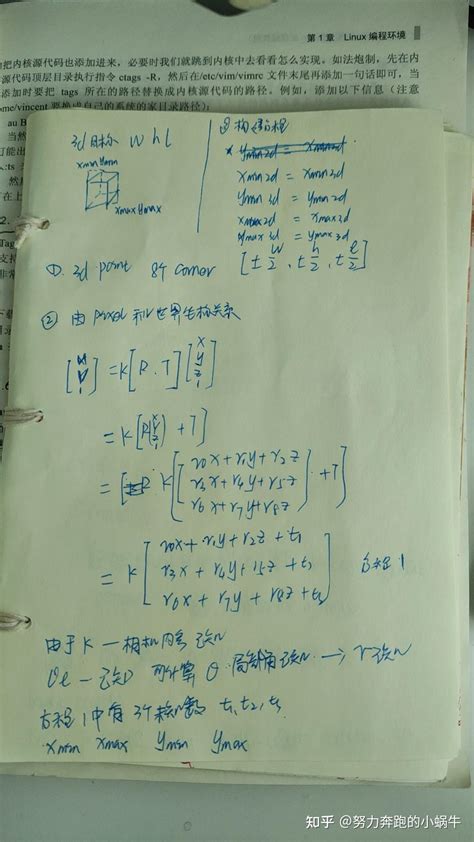 第1章 Linux 编程环境
把内核源代码也添加进来，必要时我们就跳到内核中去看看怎么实现。如法炮制，先在内
源代码顶层目录执行指令 ctags -R，然后在/etc/vim/vimrc 文件末尾再添加一句话即可，当
添加时要把 tags 所在的路径替换成内核源代码的路径。例如，添加以下信息（注意
ome/vincent 要换成自己的系统的家目录路径）：
au B
当然
可能出
:ts
然
在上
2.
Tag
支持
非常
3d目标 w h l
xmin ymin
xmax ymax
③ 构建方程
xmin2d = xmin3d
ymin3d = ymin2d
xmax2d = xmax3d
ymax3d = ymax3d
[±w/2, ±h/2, ±l/2]
①. 3d point 8个 corner
② 由pixel 和世界坐标关系
[u v 1] = K[R . T] [x y z 1]
= K[R[x y z] + T]
= K([r0x + r1y + r2z
r3x + r4y + r5z
r6x + r7y + r8z] + T)
= K [r0x + r1y + r2z + t1
r3x + r4y + r5z + t2
r6x + r7y + r8z + t3] 方程1
由于K — 相机内参 已知
已知 可计算 θ 局部角已知 → r已知
方程1中有3个未知数 t1, t2, t3
xmin xmax ymin ymax
知乎 @努力奔跑的小蜗牛